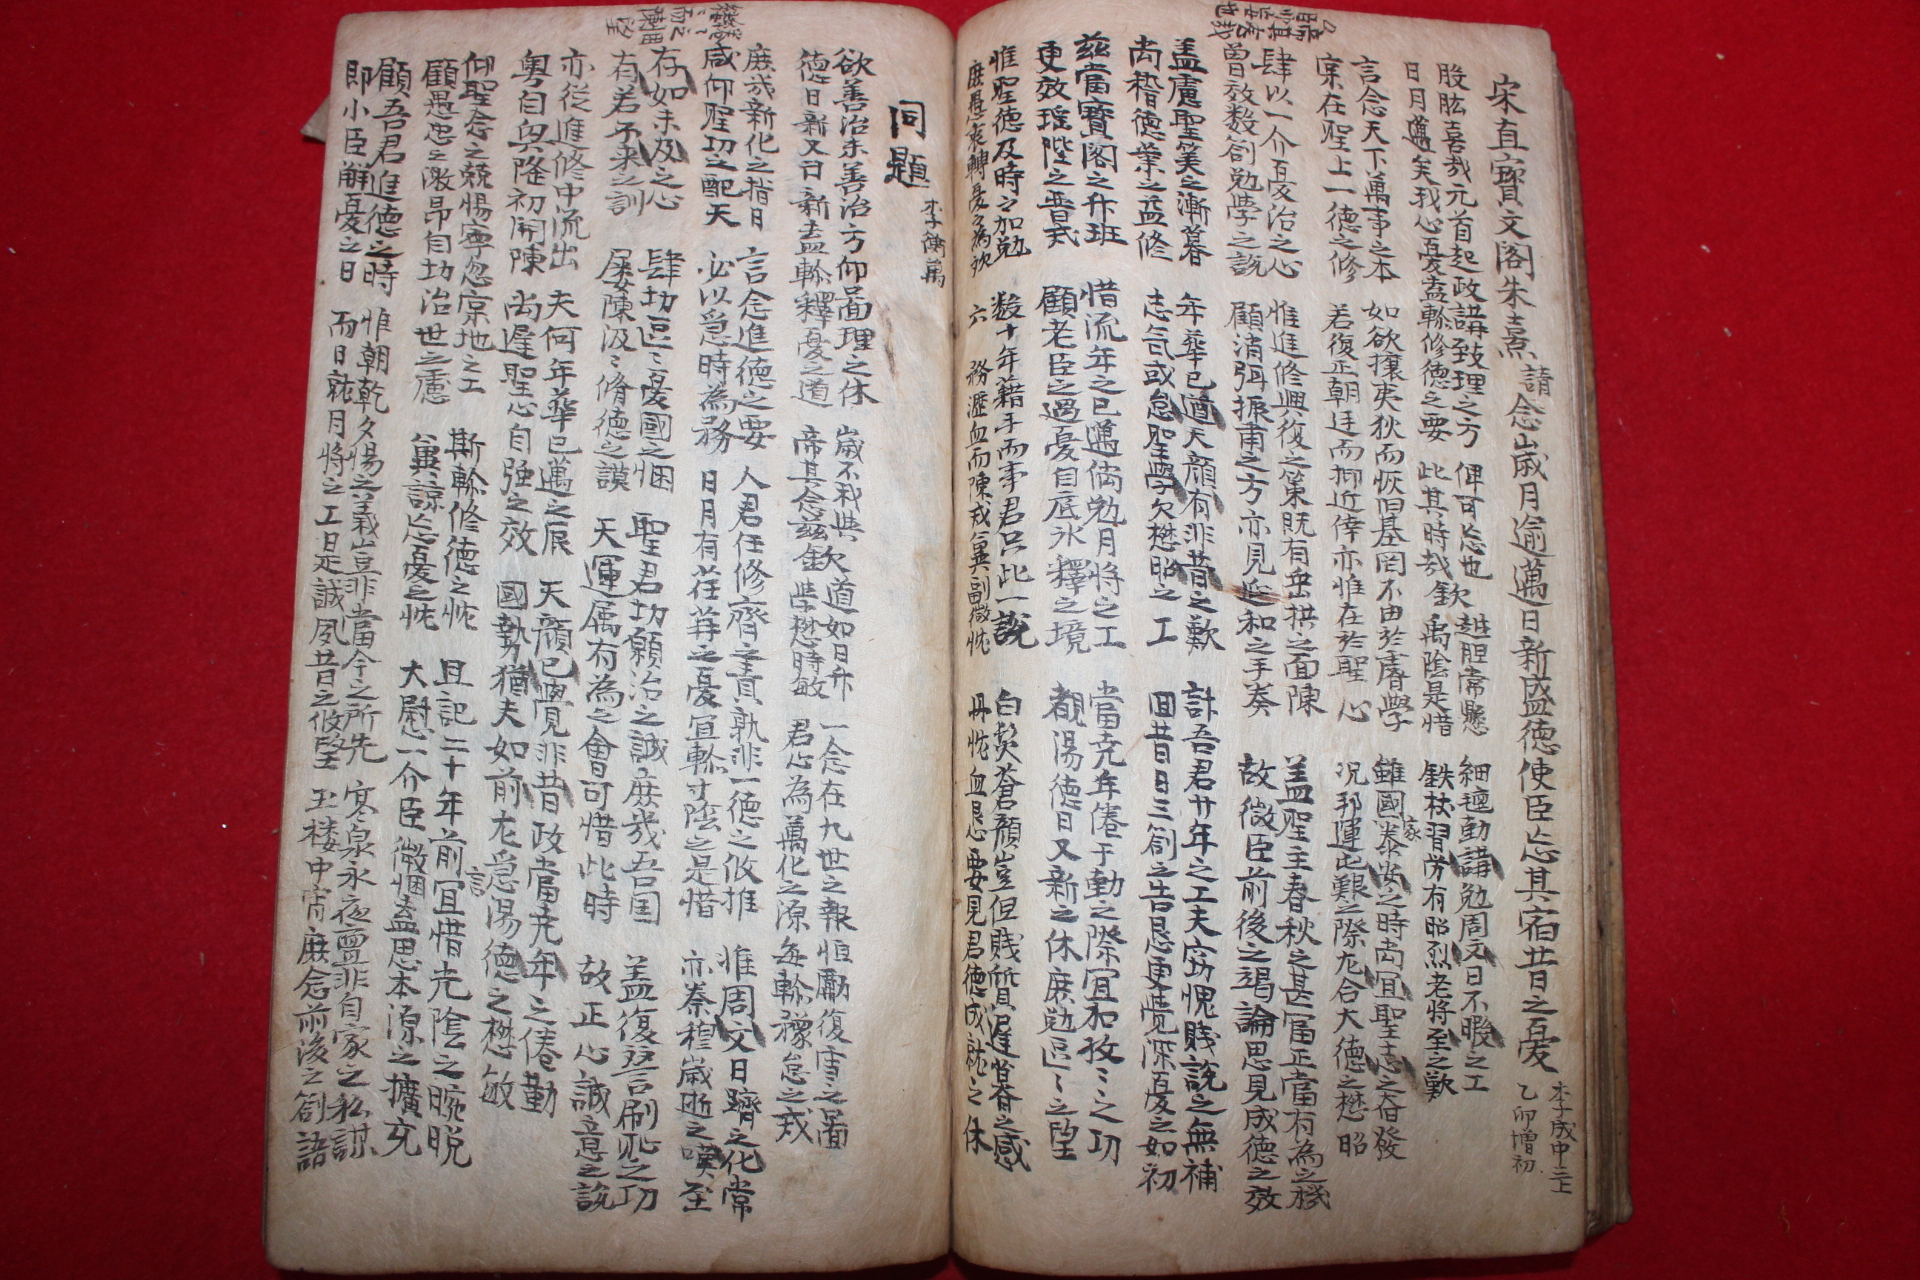 宋直寶文閣朱熹請念歲月逾邁日新盛德使臣忘其宿昔之憂
李成中三上
乙卯增初
股肱喜哉元首起政講致理之方 俾可忘也 越胆常懸 細氈勤講勉周文日不暇之工
日月邁矣我心憂盍軫修德之要 此其時哉欽 禹陰是惜 鉄杖習勞有昭烈老將至之歎
言念天下萬事之本 如欲攘夷狄而恢旧基罔不由於睿學 雖國家泰安之時尚宜聖志之奮發
寔在聖上一德之修 若復正朝廷而抑近倖亦惟在於聖心 況邦運此艱之際尤合大德之懋昭
肆以一介憂治之心 惟進修興復之策既有垂拱之面陳 盖聖主春秋之甚富正當有為之機
曾效数劄勉學之說 顧消弭振肅之方亦見延和之手奏 故微臣前後之竭論思見成德之效
盖慮聖筭之漸暮 年華已遒天顔有非昔之歎 計吾君廿年之工夫窃愧賤說之無補
尚稽德業之益修 志气或怠聖學欠懋昭之工 回昔日三劄之告恳更覺深憂之如初
玆當寶閣之升班 惜流年之已邁尚勉月將之工 當尭年倦于勤之際宜加孜〻之功
更效瑤陛之晋戒 顧老臣之過憂自底氷釋之境 覩湯德日又新之休庶勉區〻之望
惟聖德及時之加勉 数十年藉手而事君只此一說 白髪蒼顔豈但賤質遲暮之感
庶愚衷轉憂為歡 六 務瀝血而陳戒冀副微忱 丹忱血恳要見君德成就之休
同題
欲善治未善治方仰啚理之休 歲不我與 欠道如日升 一念在九世之報恒勵復雪之啚
德日新又日新盍軫釋憂之道 帝其念玆欽 學懋時敏 君心為萬化之源每軫豫怠之戒
庶哉新化之指日 言念進德之要 人君任修齊之責孰非一德之攸推 惟周文日躋之化常
咸仰聖功之配天 必以急時為務 日月有荏苒之憂宜軫寸陰之是惜 亦秦穆歲逝之嘆至
存如未及之心 肆切區〻憂國之悃 聖君切願治之誠庶哉吾国 盖復讐刷耻之功
有若不来之訓 屡陳汲〻脩德之謨 天運属有為之會可惜此時 故正心誠意之說
亦從進修中流出 夫何年華已邁之辰 天顔已覺非昔政當尭年之倦勤
粤自興隆初開陳 尚遲聖心自强之效 國勢猶夫如前尤急湯德之懋敏
仰聖念之兢惕寧忽寔地之工 斯軫修德之忱 且記二十年前言宜惜光陰之晼晚
顧愚忠之激昂自切治世之慮 冀諒忘憂之忱 大慰一介臣微悃盍思本源之擴充
顧吾君進德之時 惟朝乾夕惕之義豈非當今之所先 寒泉永夜亶非自家之私謀
即小臣觧憂之日 而日就月將之工是誠夙昔之攸望 玉楼中宵庶念前後之劄語